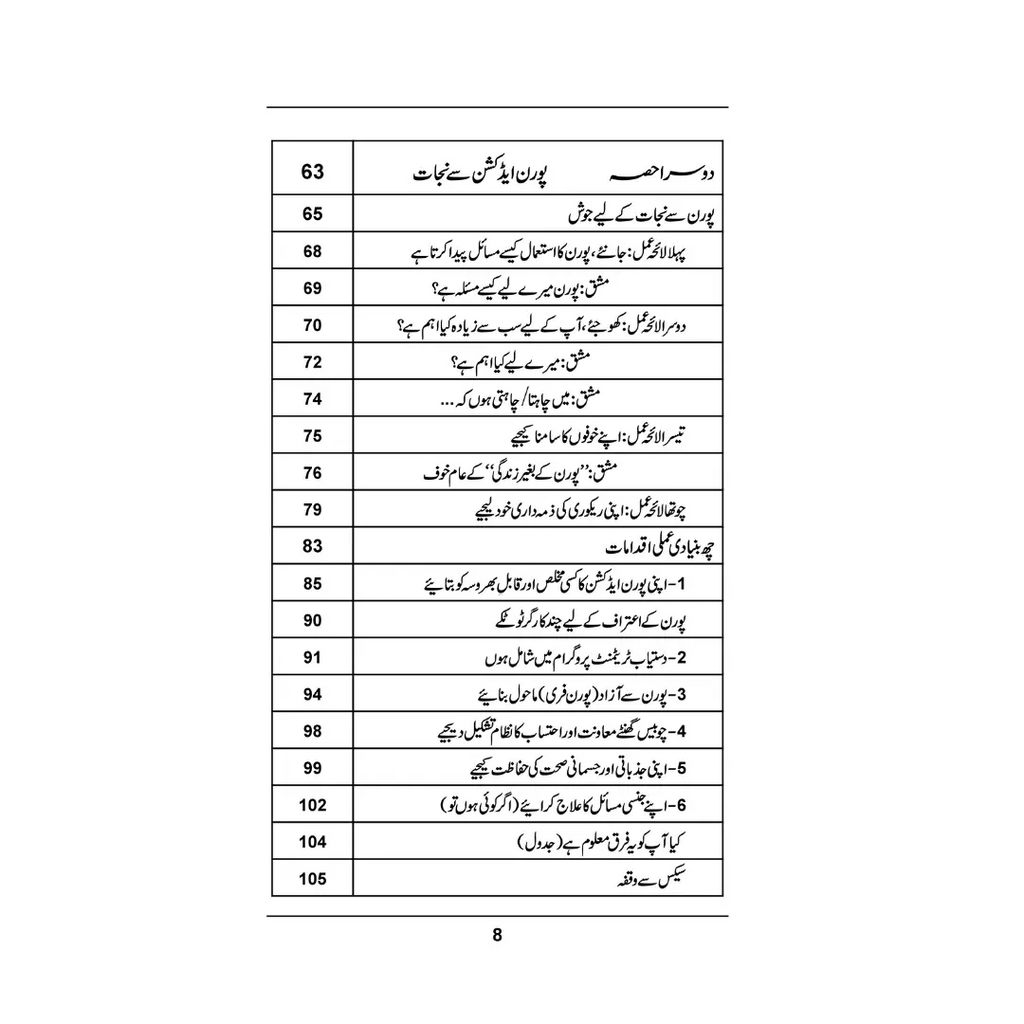 دوسرا حصہ پورن ایڈکشن سے نجات 63
پورن سے نجات کے لیے جوش 65
پہلا لائحہ عمل: جانئے، پورن کا استعمال کیسے مسائل پیدا کرتا ہے 68
مشق: پورن میرے لیے کیسے مسئلہ ہے؟ 69
دوسرا لائحہ عمل: کھوجئے، آپ کے لیے سب سے زیادہ کیا اہم ہے؟ 70
مشق: میرے لیے کیا اہم ہے؟ 72
مشق: میں چاہتا/ چاہتی ہوں کہ ... 74
تیسرا لائحہ عمل: اپنے خوفوں کا سامنا کیجیے 75
مشق: ’’پورن کے بغیر زندگی‘‘ کے عام خوف 76
چوتھا لائحہ عمل: اپنی ریکوری کی ذمہ داری خود لیجیے 79
چھ بنیادی عملی اقدامات 83
1- اپنی پورن ایڈکشن کا کسی مخلص اور قابل بھروسہ کو بتائیے 85
پورن کے اعتراف کے لیے چند کارگر ٹوٹکے 90
2- دستیاب ٹریٹمنٹ پروگرام میں شامل ہوں 91
3- پورن سے آزاد (پورن فری) ماحول بنائیے 94
4- چوبیس گھنٹے معاونت اور احتساب کا نظام تشکیل دیجیے 98
5- اپنی جذباتی اور جسمانی صحت کی حفاظت کیجیے 99
6- اپنے جنسی مسائل کا علاج کرائیے (اگر کوئی ہوں تو) 102
کیا آپ کو یہ فرق معلوم ہے (جدول) 104
سیکس سے وقفہ 105
8